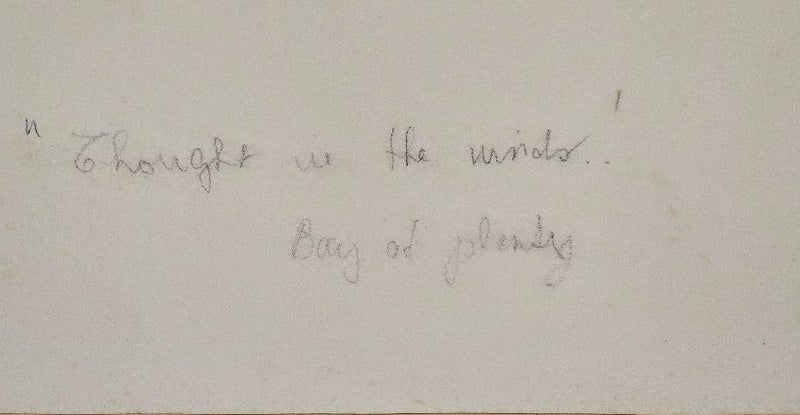 " Thought in the winds..'
Bay of plenty